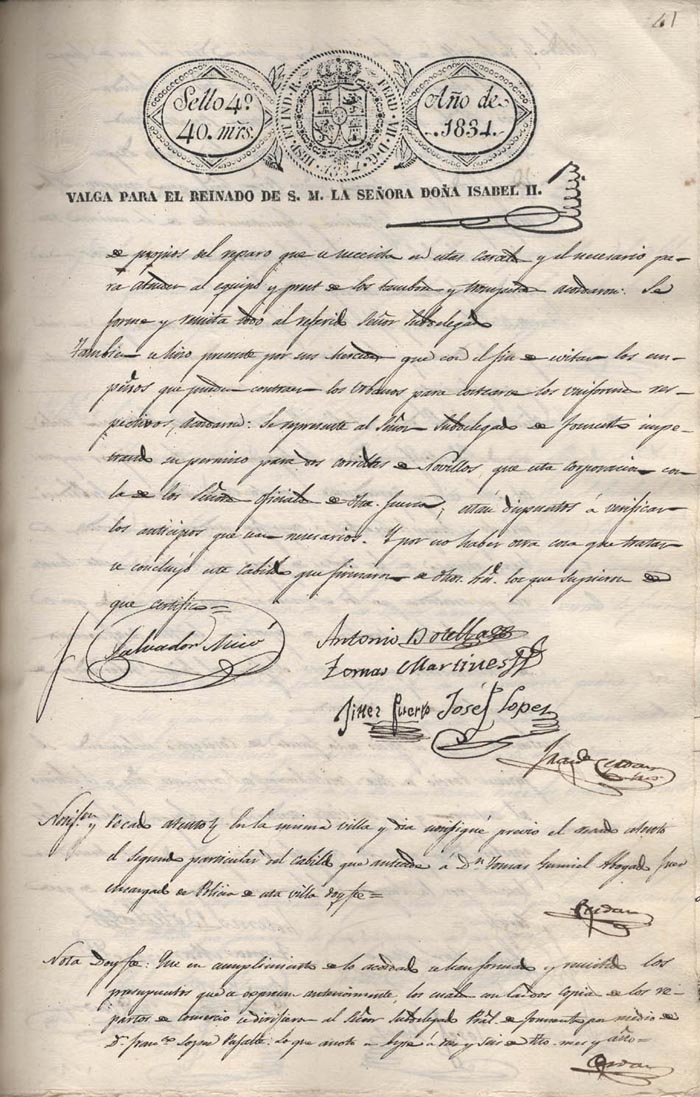 41
Sello 4º
40. mrs.
HISP. ET IND. R. FERD. VII. D. G.
Año de
1834.
VALGA PARA EL REINADO DE S. M. LA SEÑORA DOÑA ISABEL II.
de propios del reparo que se necesita en estas Carceles y el necesario pa-
ra atender al equipo y prest de los tambores y trompetas acordaron: Se
forme y remita todo al referido Señor Subdelegado
Tambien se hizo presente por sus mercedes que con el fin de evitar los em-
peños que pueden contraer los Urbanos para costearse los Uniformes res-
pectivos, acordaron: Se represente al Señor Subdelegado de fomento impe-
trando su permiso para dos corridas de Novillos que esta corporacion con
la de los Señores oficiales de dha. fuerza, estan dispuestos á verificar
los anticipos que sean necesarios. Y por no haber otra cosa que tratar
se concluyó este Cabildo que firmaron de dhos. los que supieron de
que certifico=
Salvador Micó
Antonio Botella
Tomas Martines
Jiner Puerto José Lopez
Cerdan
y recado atento En la misma villa y dia notifiqué previo el recado atento
el segundo particular del Cabildo que antecede á Dn. Tomas Gumiel Abogado
encargado de Policia de esta villa doy fe=
Cerdan
Nota Doy fe: Que en cumplimiento de lo acordado se han formado y remitido los
presupuestos que se expresan anteriormente, los cuales con las dos copias de los re-
partos de comercio se dirijieron al Señor Subdelegado Pral. de fomento por medio de
Dn. Franco. Lopez lo que anoto a diez y seis de dho. mes y año=
Cerdan